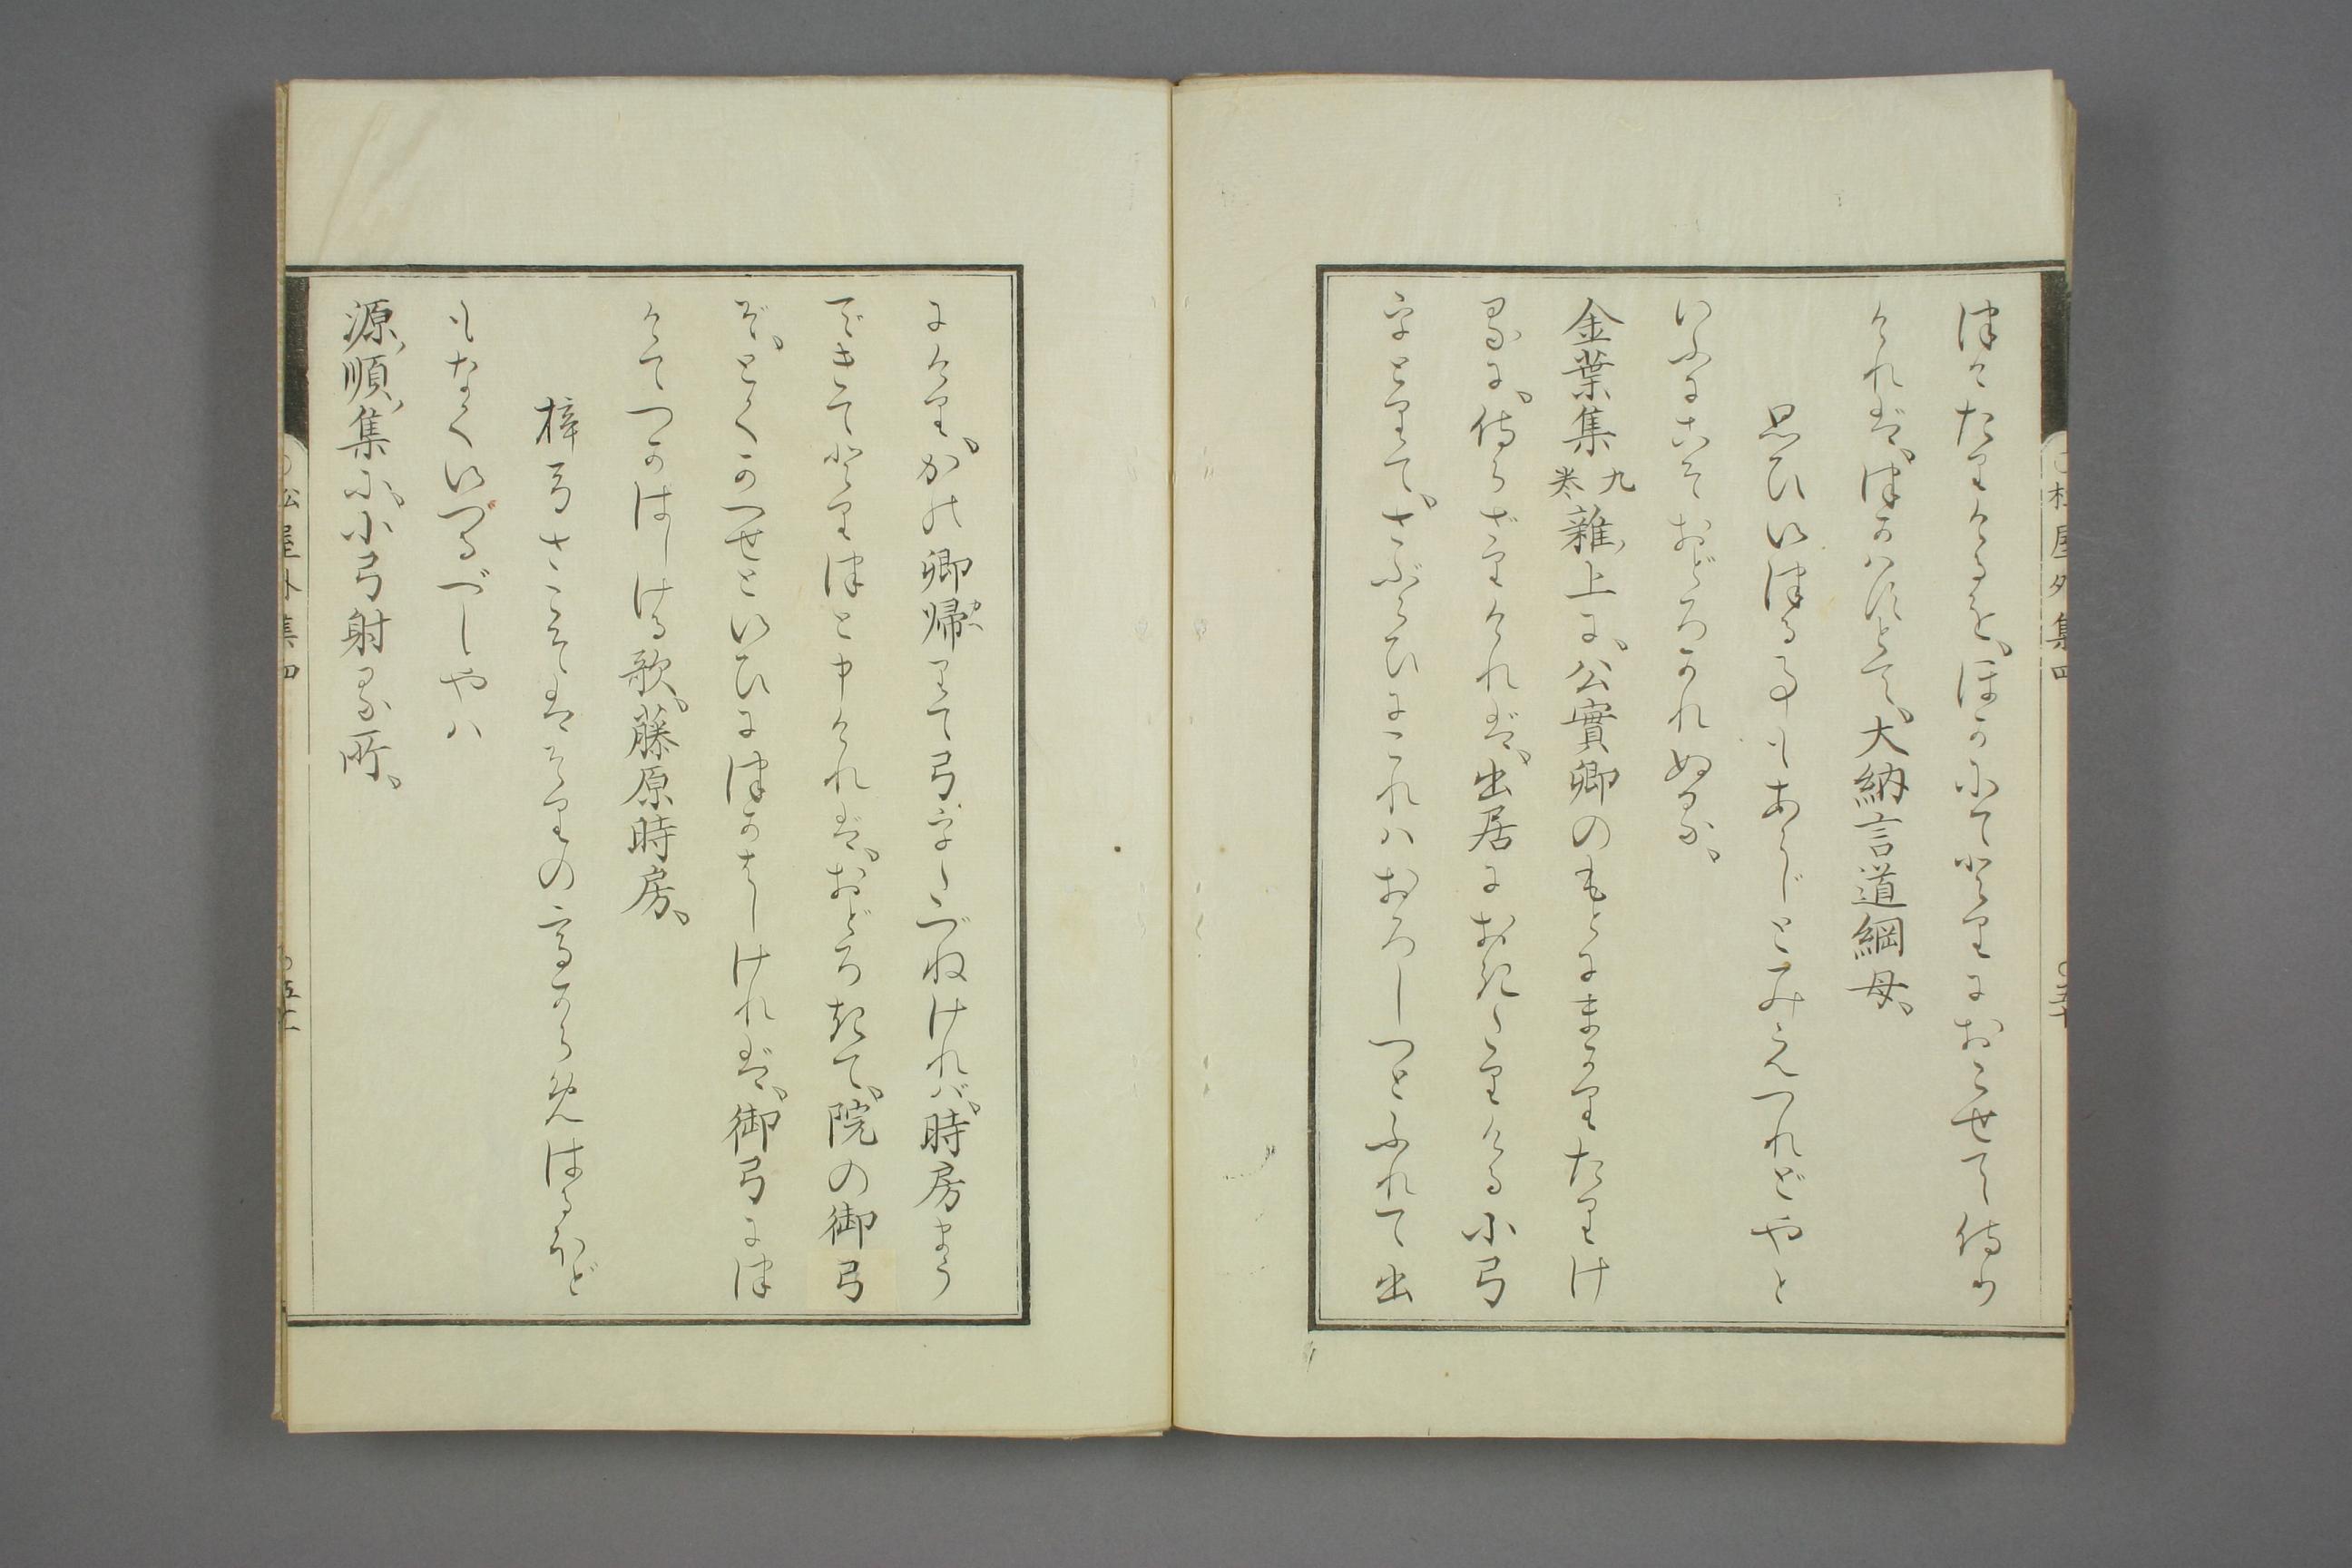 津けたりけるを、ほかにてとりにおこせて侍り
ければ、津かはすとて、大納言道綱母、
思ひ以津る事もあらじとみえつれどやと
いふにこそおどろかれぬる、
金葉集九巻雜上に、公實卿のもとにまかりたりけ
るに、侍らざりければ、出居におきたりける小弓
をとりて、さぶらひにこれハおろしつとふれて出
にけり、かの卿歸カヘりて弓をたづねけれバ、時房まう
できてとり津と申ければ、おどろきて、院の御弓
ぞ、とくかへせといひに津かはしければ、御弓に津
けてつかはしける歌、藤原時房、
梓弓さこそはそりの高からめはるほど
もなくいつるべしやハ
源順集に、小弓射る所、
松屋外集四
松屋外集四